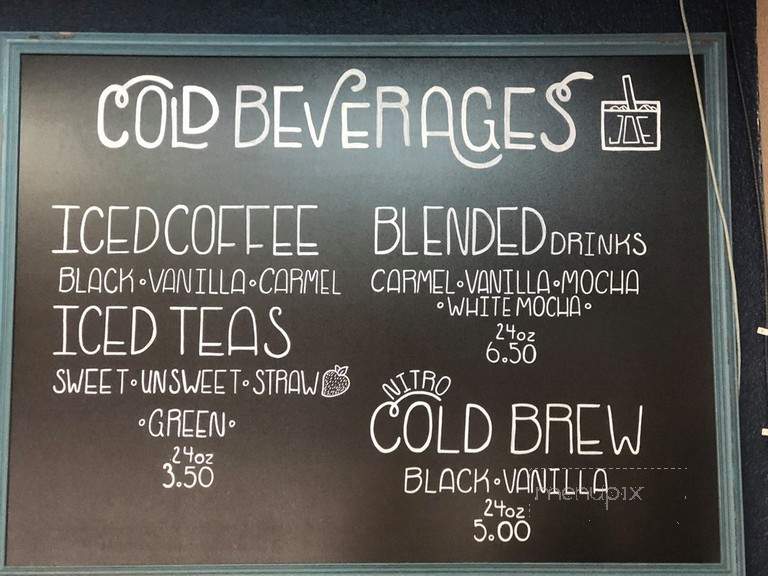 COLD BEVERAGES
JOE
ICED COFFEE
BLACK • VANILLA • CARMEL
ICED TEAS
SWEET • UNSWEET • STRAW
•GREEN•
24oz
3.50
BLENDED DRINKS
CARMEL • VANILLA • MOCHA
•WHITE MOCHA•
24oz
6.50
NITRO
COLD BREW
BLACK • VANILLA
24oz
5.00
menupix